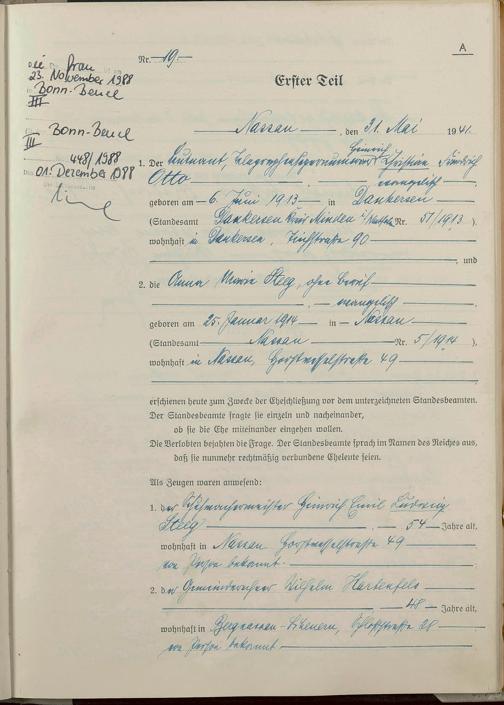 A
Nr. 19.
die Frau
23. November 1988
Bonn-Beuel
III
III Bonn-Beuel
448/1988
01. Dezember 1988
Erster Teil
Nassau, den 31. Mai 1941.
1. Der Leutnant, Heinrich Christian Friedrich
Otto evangelisch
geboren am 6. Juni 1913 in Dankersen
(Standesamt Dankersen Kreis Minden i/Westf. Nr. 51/1913).
wohnhaft in Dankersen, 90
, und
2. die Anna Maria Steeg, ohne Beruf
, evangelisch
geboren am 25. Januar 1914 in Nassau
(Standesamt Nassau Nr. 5/1914).
wohnhaft in Nassau, Horstwesselstraße 49
erschienen heute zum Zwecke der Eheschließung vor dem unterzeichneten Standesbeamten.
Der Standesbeamte fragte sie einzeln und nacheinander,
ob sie die Ehe miteinander eingehen wollen.
Die Verlobten bejahten die Frage. Der Standesbeamte sprach im Namen des Reiches aus,
daß sie nunmehr rechtmäßig verbundene Eheleute seien.
Als Zeugen waren anwesend:
1. der Schuhmachermeister Heinrich Emil Ludwig
Steeg, 54 Jahre alt,
wohnhaft in Nassau Horstwesselstraße 49
von Person bekannt.
2. der Wilhelm Hartenfels
48 Jahre alt,
wohnhaft in Bergnassau-Scheuern, 28
von Person bekannt